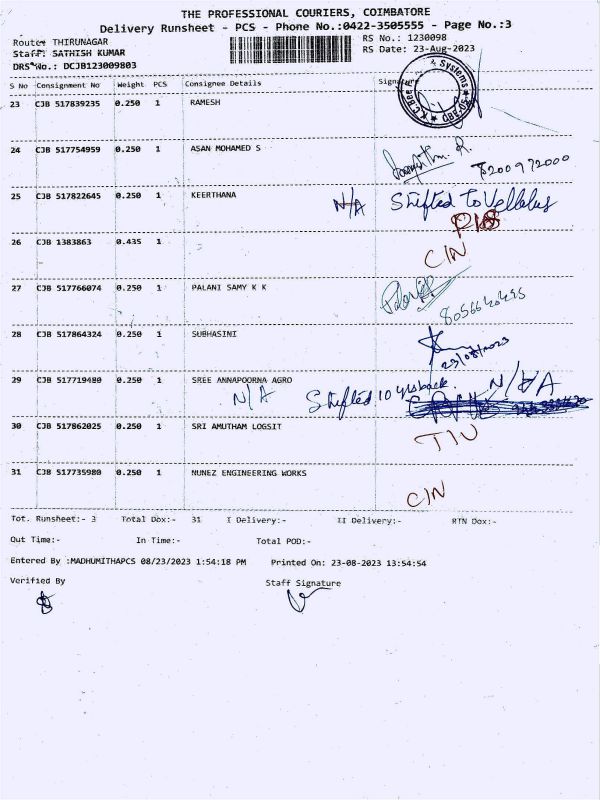 THE PROFESSIONAL COURIERS, COIMBATORE
Delivery Runsheet - PCS - Phone No.:0422-3505555 - Page No.:3
Route: THIRUNAGAR RS No.: 1230098
Staff: SATHISH KUMAR RS Date: 23-Aug-2023
DRS No.: DCJB123009803
S No Consignment No Weight PCS Consignee Details Signature
& Systems
23 CJB 517839235 0.250 1 RAMESH
24 CJB 517754959 0.250 1 ASAN MOHAMED S
8200972000
25 CJB 517822645 0.250 1 KEERTHANA N/A Shifted To Vellalur
26 CJB 1383863 0.435 1
CIN
27 CJB 517766074 0.250 1 PALANI SAMY K K
8056640495
28 CJB 517864324 0.250 1 SUBHASINI
23/08/2023
29 CJB 517719480 0.250 1 SREE ANNAPOORNA AGRO
N/A Shifted 10 yrs back. N/A
30 CJB 517862025 0.250 1 SRI AMUTHAM LOGSIT
31 CJB 517735980 0.250 1 NUNEZ ENGINEERING WORKS
CIN
Tot. Runsheet:- 3 Total Dox:- 31 I Delivery:- II Delivery:- RTN Dox:-
Out Time:- In Time:- Total POD:-
Entered By :MADHUMITHAPCS 08/23/2023 1:54:18 PM Printed On: 23-08-2023 13:54:54
Verified By Staff Signature